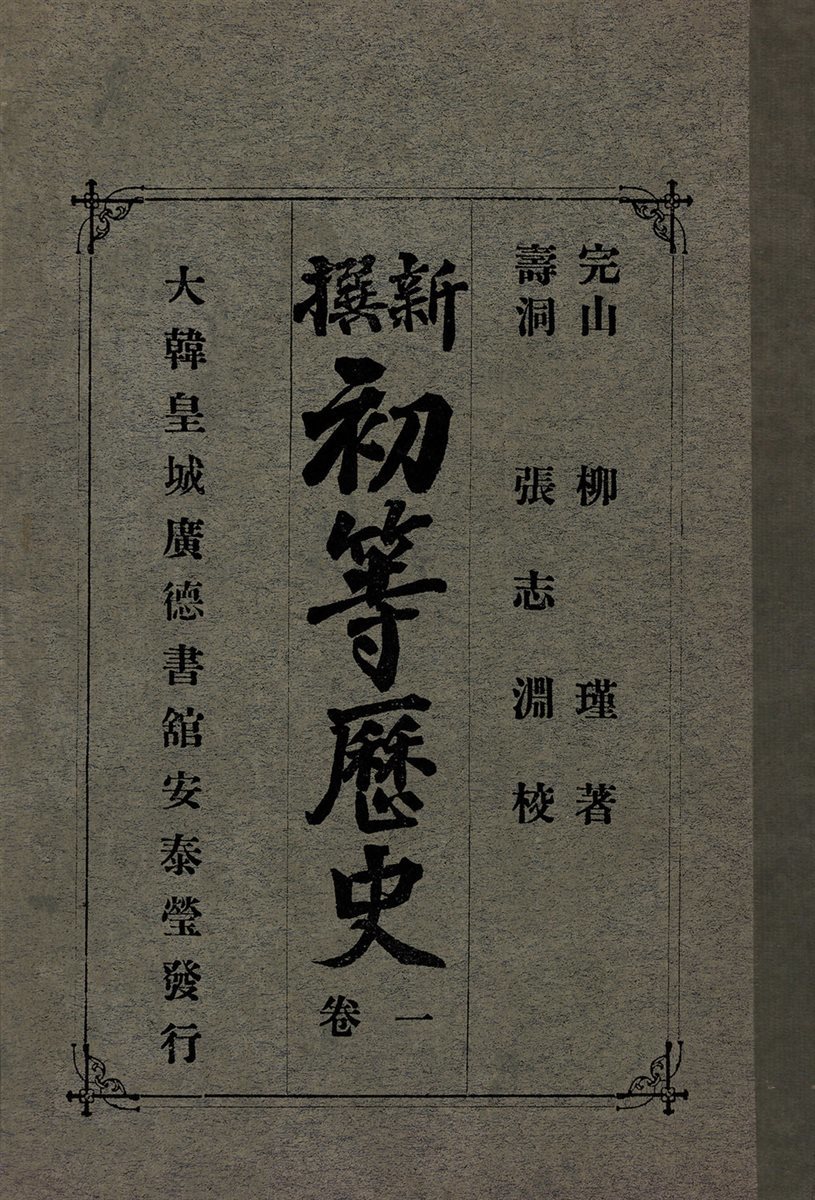 完山 柳瑾著
壽洞 張志淵校
新撰
初等歷史
卷一
大韓皇城廣德書舘安泰瑩發行